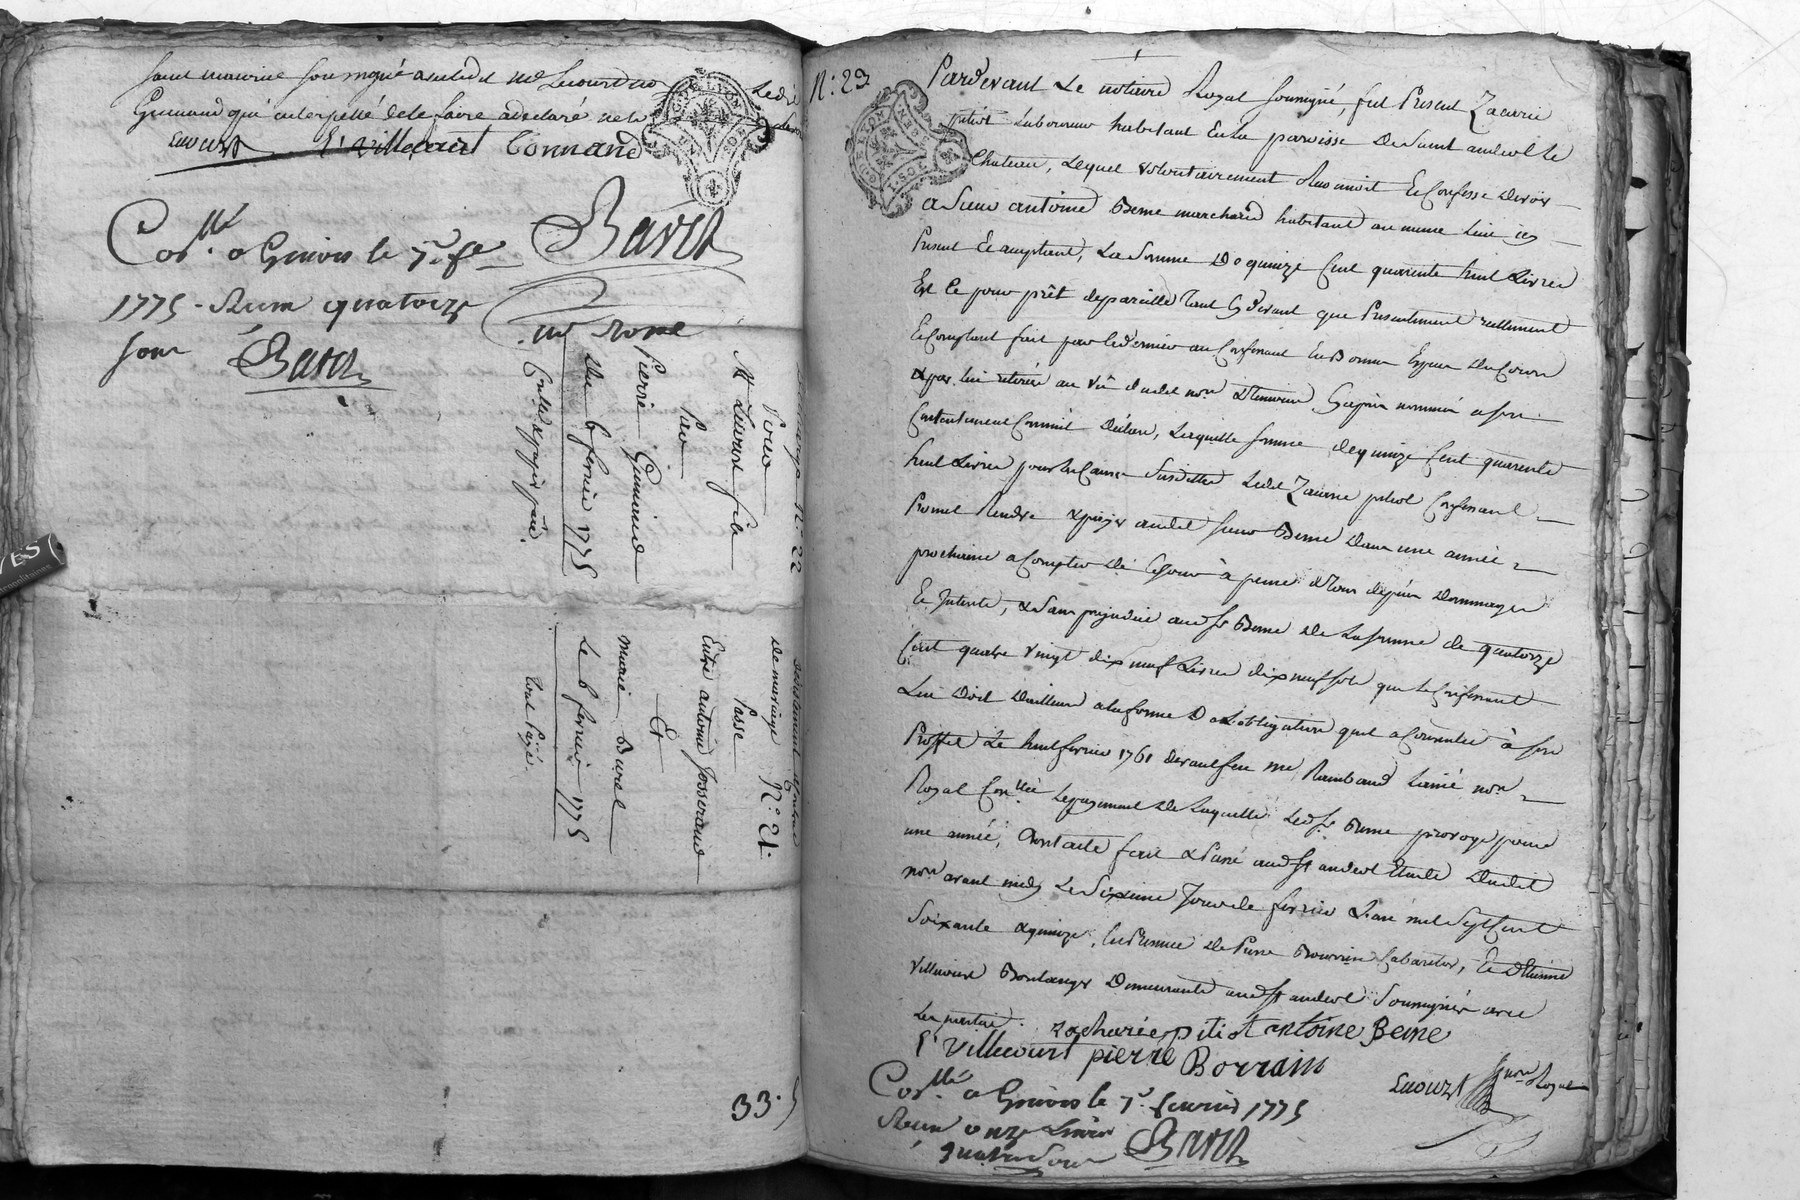 saint maurice soussigné avec led. me
Guinand qui interpellé de le faire a declaré ne le
E. Villecourt Connand
Con.llé a Givors le 7e. fe
1775 - Reçu quatorze
sous Bavet
Bavet
un rolle
N.º 22
Pour
Me Liévaux fils
Sur
Pierre Guinand
Du 6 fevrier 1775
N.º 21.
de mariage
Passé
Entre antoine Josserand
Et
Marie Burel
Le 6 fevrier 1775
tout Payé.
33.
N.º 23
Pardevant Le notaire Royal soussigné, fut Present Zacarie
pitiot Laboureur habitant En la paroisse De Saint andeol le
Chateau, Lequel volontairement Reconnoit Et Confesse devoir
a Sieur antoine Beme marchand habitant au meme Lieu icy
Present Et acceptant, La Somme De quinze Cent quarente huit Livres
Et Ce pour prêt de pareille tant Cy devant que Presentement reellement
Et Comptant fait par le dernier au Confessant En Bonnes Especes Du Cours
& par lui retirée au vû dudit nore. & temoins Cy après nommés a son
Contentement Comme il declare, Laquelle somme de quinze Cent quarente
huit Livres pour les Causes Susdittes Ledit Zacarie pitiot Confessant
Promet Rendre & payer audit Sieur Beme Dans une année
prochaine a Compter de Ce jour à peine de tous depens Dommages
Et Interets, & Sans prejudice aud. Sr Beme De La somme de quatorze
Cent quatre vingt dix neuf Livres dix neuf sols que le Confessant
Lui Doit D'ailleurs a la forme De L'obligation qu'il a Consentie à son
Proffit Le huit fevrier 1761 devant feu me Rambaud L'ainé nore
Royal Con.llée Le payement De Laquelle Led. Sr. Beme proroge pour
une année, Dont acte fait & Passé aud. St andeol Etude Dudit
nore avant midy Le Sixieme Jour de fevrier L'an mil Sept Cent
Soixante & quinze, En Presence De Pierre Bourrin Cabaretier, Et d'Etienne
Villecourt Boulanger Demeurants aud. St andeol Soussignés avec
Les parties. zacharie pitiot antoine Beme
E. Villecourt pierre Borrain
nore Royal
Con.llé a Givors le 7e. fevrier 1775
Reçu onze Livres
quatre Sous Bavet